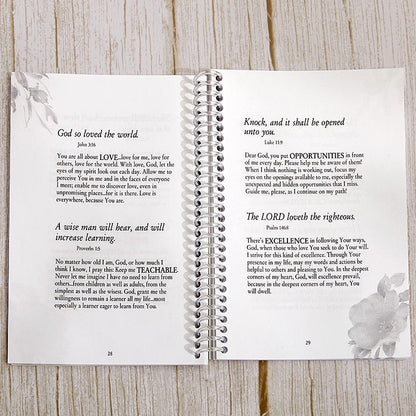 God so loved the world.
John 3:16
You are all about LOVE...love for me, love for
others, love for the world. With love, God, let the
eyes of my spirit look out each day. Allow me to
perceive You in me and in the faces of everyone
I meet; enable me to discover love, even in
unpromising places...for it is there. Love is
everywhere because You are.
A wise man will hear, and will
increase learning.
Proverbs 1:5
No matter how old I am, God, or how much I
think I know, I pray this: Keep me TEACHABLE.
Never let me imagine I have no need to learn from
others...from children as well as adults, from the
simplest as well as the wisest. God, grant me the
willingness to remain a learner all my life...most
especially a learner eager to learn from You.
28
Knock, and it shall be opened
unto you.
Luke 11:9
Dear God, you put OPPORTUNITIES in front
of me every day. Please help me be aware of them!
When I think nothing is working out, focus my
eyes on the openings available to me, especially the
unexpected and hidden opportunities that I miss.
Guide me, please, as I continue on my path!
The LORD loveth the righteous.
Psalm 146:8
There's EXCELLENCE in following Your ways,
God, when those who love You seek to do Your will.
I strive for this kind of excellence. Through Your
presence in my life, may my words and actions be
helpful to others and pleasing to You. In the deepest
corners of my heart, God, will excellence prevail,
because in the deepest corners of my heart, You
will dwell.
29